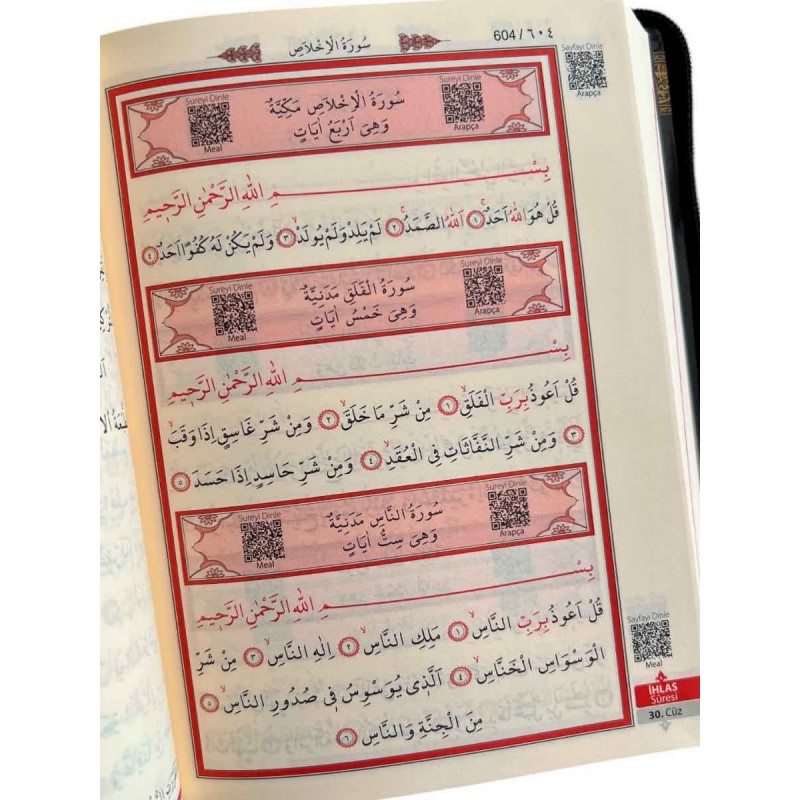 سُورَةُ الْاِخْلَاصِ
604 / ٦٠٤
Sayfayı Dinle
Arapça
Sureyi Dinle
Meal
سُورَةُ الْاِخْلَاصِ مَكِّيَّةٌ
وَهِيَ اَرْبَعُ اٰيَاتٍ
Sureyi Dinle
Arapça
بِسْمِ اللّٰهِ الرَّحْمٰنِ الرَّحِيمِ
قُلْ هُوَ اللّٰهُ اَحَدٌۚ ١ اَللّٰهُ الصَّمَدُۚ ٢ لَمْ يَلِدْ وَلَمْ يُولَدْۙ ٣ وَلَمْ يَكُنْ لَهُ كُفُوًا اَحَدٌ ٤
Sureyi Dinle
Meal
سُورَةُ الْفَلَقِ مَدَنِيَّةٌ
وَهِيَ خَمْسُ اٰيَاتٍ
Sureyi Dinle
Arapça
بِسْمِ اللّٰهِ الرَّحْمٰنِ الرَّحِيمِ
قُلْ اَعُوذُ بِرَبِّ الْفَلَقِۙ ١ مِنْ شَرِّ مَا خَلَقَۙ ٢ وَمِنْ شَرِّ غَاسِقٍ اِذَا وَقَبَۙ
٣ وَمِنْ شَرِّ النَّفَّاثَاتِ فِي الْعُقَدِۙ ٤ وَمِنْ شَرِّ حَاسِدٍ اِذَا حَسَدَ ٥
Sureyi Dinle
Meal
سُورَةُ النَّاسِ مَدَنِيَّةٌ
وَهِيَ سِتُّ اٰيَاتٍ
Sureyi Dinle
Arapça
بِسْمِ اللّٰهِ الرَّحْمٰنِ الرَّحِيمِ
قُلْ اَعُوذُ بِرَبِّ النَّاسِۙ ١ مَلِكِ النَّاسِۙ ٢ اِلٰهِ النَّاسِۙ ٣ مِنْ شَرِّ
الْوَسْوَاسِ الْخَنَّاسِۙ ٤ اَلَّذِي يُوَسْوِسُ فِي صُدُورِ النَّاسِۙ ٥
مِنَ الْجِنَّةِ وَالنَّاسِ ٦
Sayfayı Dinle
Meal
İHLAS
Sûresi
30. Cüz